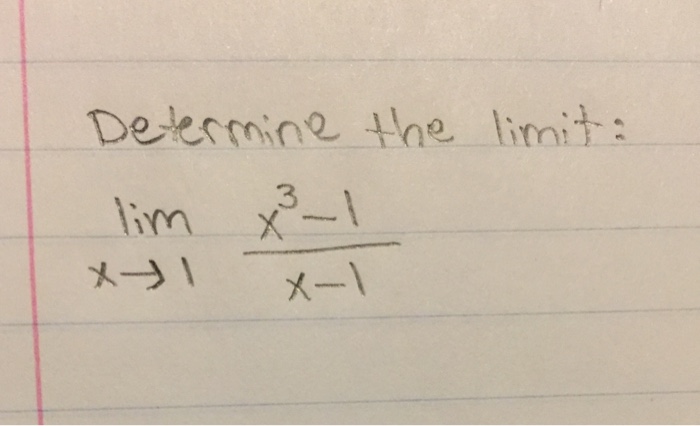 Determine the limit:
lim x³-1
x→1 x-1